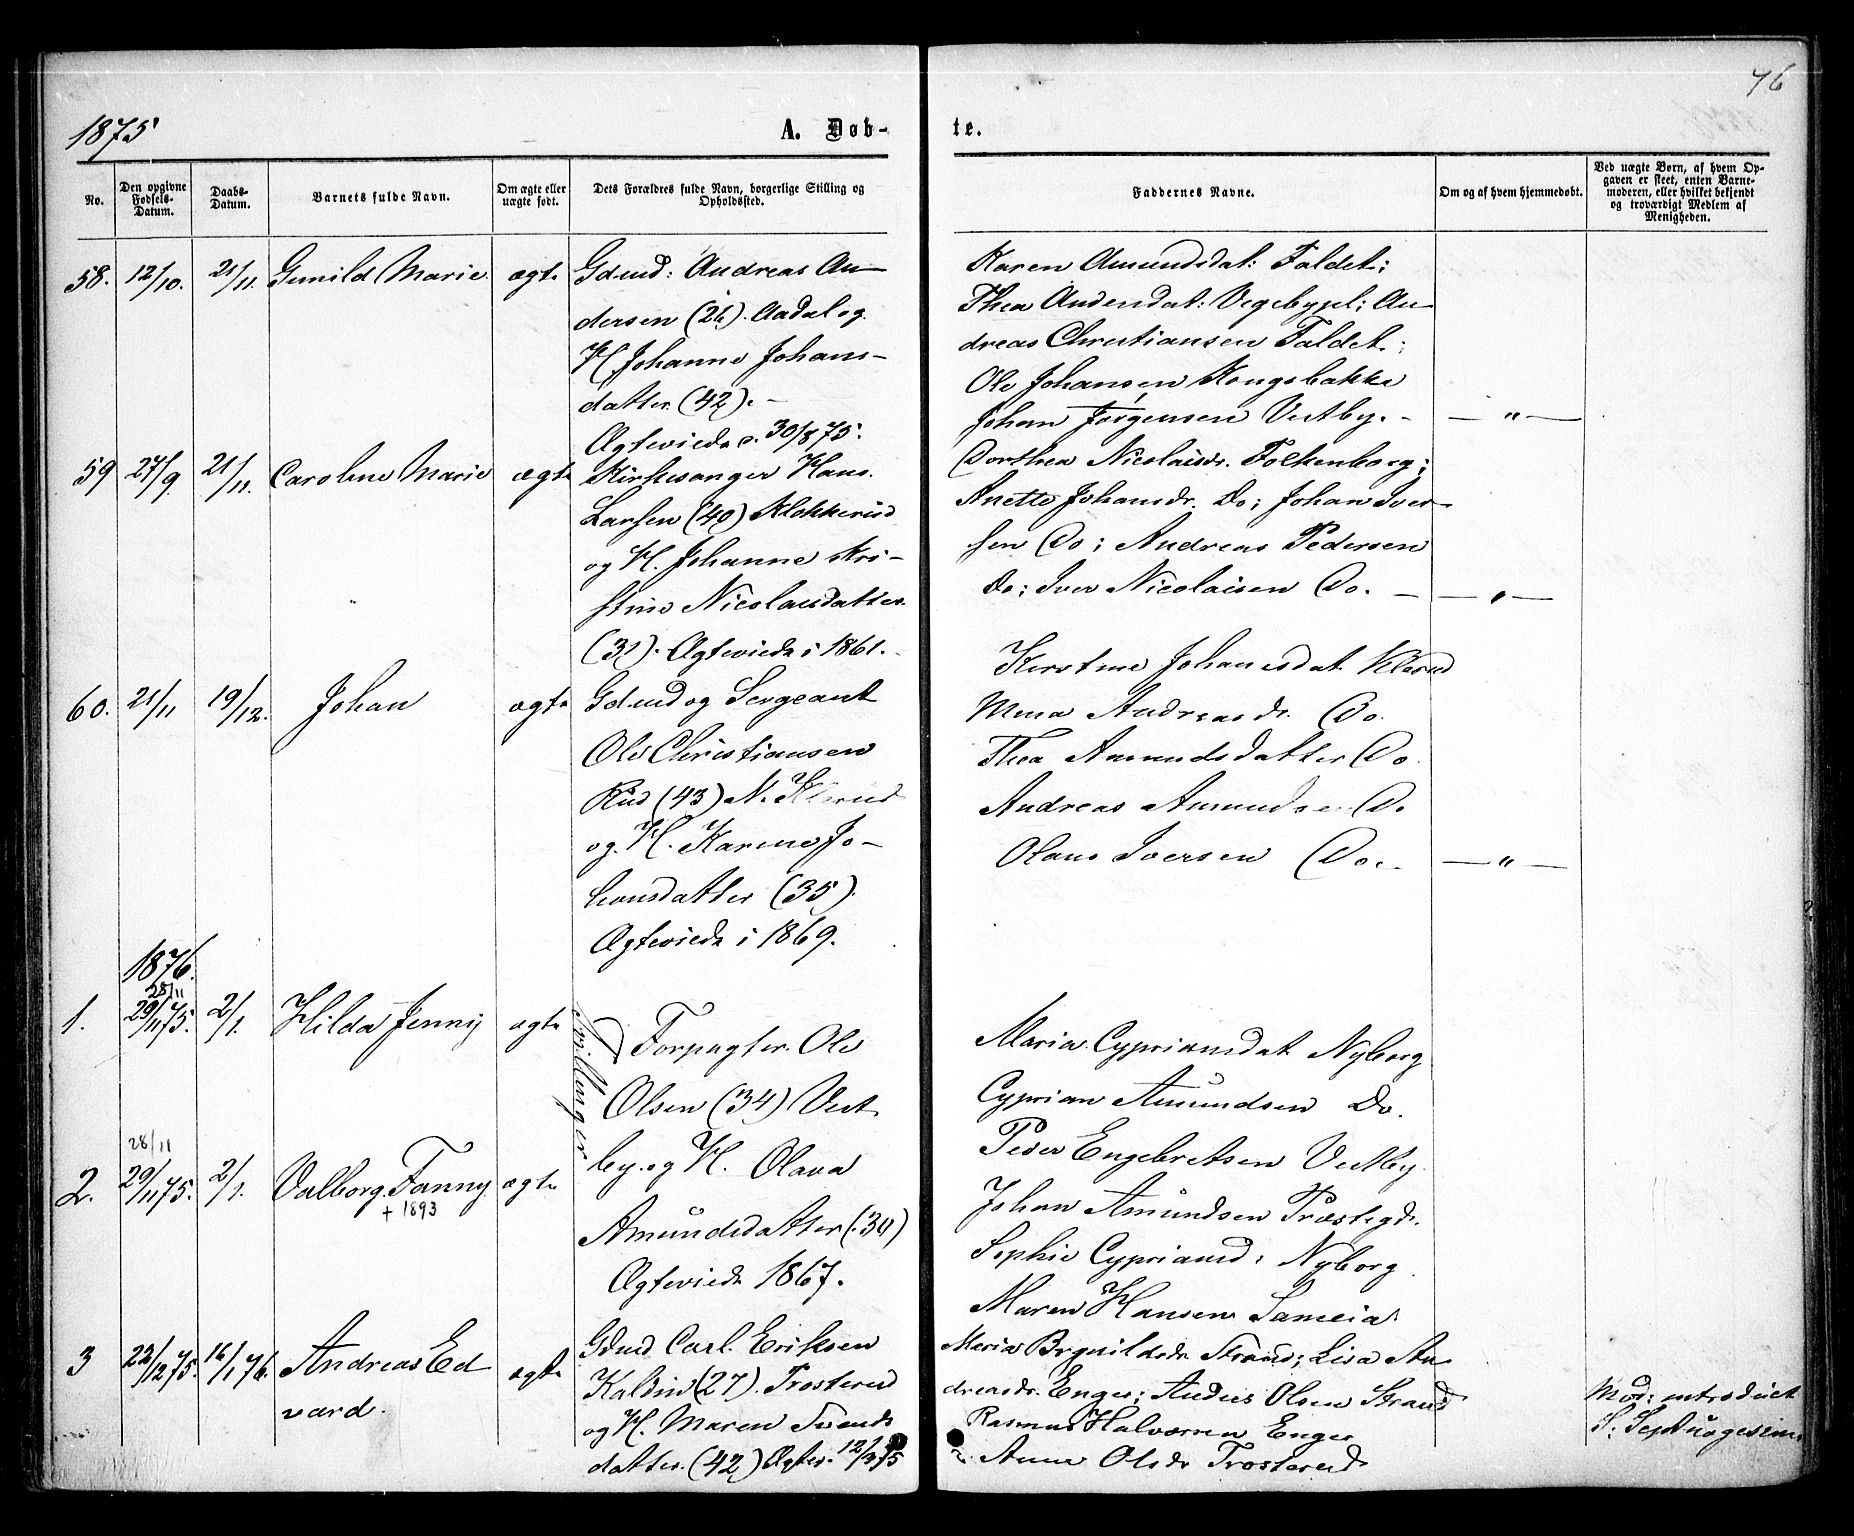 76
1875
A. Døb-
te.
No.
Den opgivne Fødsels-Datum.
Daabs-Datum.
Barnets fulde Navn.
Om ægte eller uægte født.
Dets Forældres fulde Navn, borgerlige Stilling og Opholdssted.
Faddernes Navne.
Om og af hvem hjemmedøbt.
Ved uægte Børn, af hvem Opgaven er skeet, enten Barnemoderen, eller hvilket bekjendt og troværdigt Medlem af Menigheden.
58. 12/10. 21/11. Gunild Marie. ægte
Gdmd: Andreas An-
dersen (26). Aadal og
H. Johanne Johans-
datter (42). -
Ægteviede d. 30/8 75.
Karen Amundsdat: Faldet;
Thea Andersdat: Vegeby pl; An-
dreas Christiansen Faldet.;
Ole Johansen Kongsbakke
Johan Jørgensen Vestby. - — " —
59 27/9. 21/11. Caroline Marie ægte
Kirkesanger Hans
Larsen (40) Klokkerud
og H. Johanne Kri-
stine Nicolaisdatter
(31). Ægteviede i 1861.
Dorthea Nicolaisdr. Folkenborg;
Anette Johansdr. Do; Johan Iver-
sen Do; Andreas Pedersen
Do; Iver Nicolaisen Do. — — " —
60. 21/11 19/12. Johan ægte
Gdmd og Sergeant
Ole Christiansen
Rud (43) N. Klerud
og H. Karine Jo-
hansdatter (35).
Ægteviede i 1869.
Kirstine Johannesdat Klerud
Mina Andreasdr. Do.
Thea Amundsdatter Do.
Andreas Amundsen Do
Olaus Iversen Do. - — " —
1876.
28/11
1. 29/11 75. 2/1. Hilda Jenny ægte
Tvillinger
Forpagter Ole
Olsen (34) Vest-
by og H. Olava
Amundsdatter (30)
Ægteviede 1867.
Maria Cypriansdat Nyborg
Cyprian Amundsen Do.
Peder Engebretsen Vestby
Johan Amundsen Præstegd.
Sophie Cypriansd: Nyborg
Maren Hansen Sameia
28/11
2. 29/11 75. 2/1. Valborg Fanny ægte
+ 1893
3 22/12 75. 16/1 76. Andreas Ed
vard. ægte
Gdmd Carl Eriksen
Kaldin (27). Trosterud
og H. Maren Svends
datter (42) Ægtev. 12/3 75
Maria Brynildsdr Strand; Lisa An
dreasdr. Enger; Andreas Olsen Strand
Rasmus Halvorsen Enger
Anne Olsdr Trosterud
Mod: introduct
S. Septuagesim.